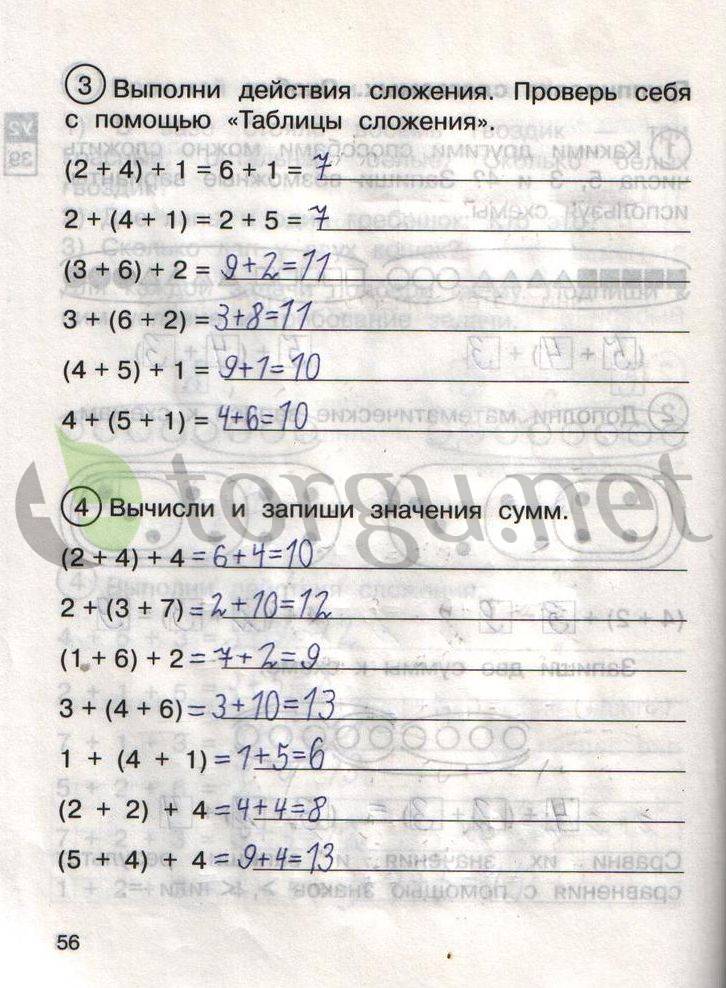 3 Выполни действия сложения. Проверь себя
с помощью «Таблицы сложения».
(2 + 4) + 1 = 6 + 1 = 7
2 + (4 + 1) = 2 + 5 = 7
(3 + 6) + 2 = 9+2=11
3 + (6 + 2) = 3+8=11
(4 + 5) + 1 = 9+1=10
4 + (5 + 1) = 4+6=10
torgu.net
4 Вычисли и запиши значения сумм.
(2 + 4) + 4 = 6+4=10
2 + (3 + 7) = 2+10=12
(1 + 6) + 2 = 7+2=9
3 + (4 + 6) = 3+10=13
1 + (4 + 1) = 1+5=6
(2 + 2) + 4 = 4+4=8
(5 + 4) + 4 = 9+4=13
56